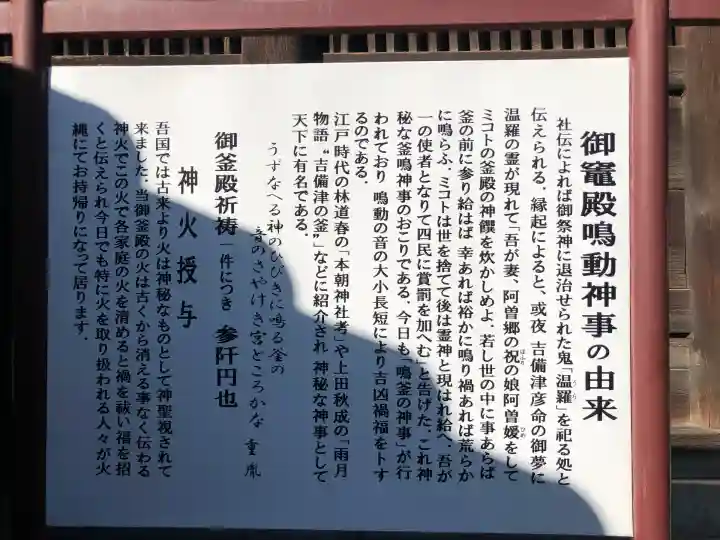 御竈殿鳴動神事の由来
社伝によれば御祭神に退治せられた鬼「温羅」を祀る処と
伝えられる．縁起によると、或夜 吉備津彦命の御夢に
温羅の霊が現れて「吾が妻、阿曽郷の祝の娘阿曽媛をして
ミコトの釜殿の神饌を炊かしめよ．若し世の中に事あらば
釜の前に参り給はば 幸あれば裕かに鳴り禍あれば荒らか
に鳴らふ．ミコトは世を捨てて後は霊神と現はれ給へ．吾が
一の使者となりて四民に賞罰を加へむ」と告げた．これ神
秘な釜鳴神事のおこりである．今日も「鳴釜の神事」が行
われており 鳴動の音の大小長短により吉凶禍福を卜す
るのである．
江戸時代の林道春の「本朝神社考」や上田秋成の「雨月
物語〝吉備津の釜〟」などに紹介され 神秘な神事として
天下に有名である．
うずなへる神のひびきに鳴る釜の
音のさやけき宮どころかな 重胤
御釜殿祈祷 一件につき 参阡円也
神火授与
吾国では古来より火は神秘なものとして神聖視されて
来ました．当御釜殿の火は古くから消える事なく伝わる
神火でこの火で各家庭の火を清めると禍を祓い福を招
くと伝えられ今日でも特に火を取り扱われる人々が火
縄にてお持帰りになって居ります．